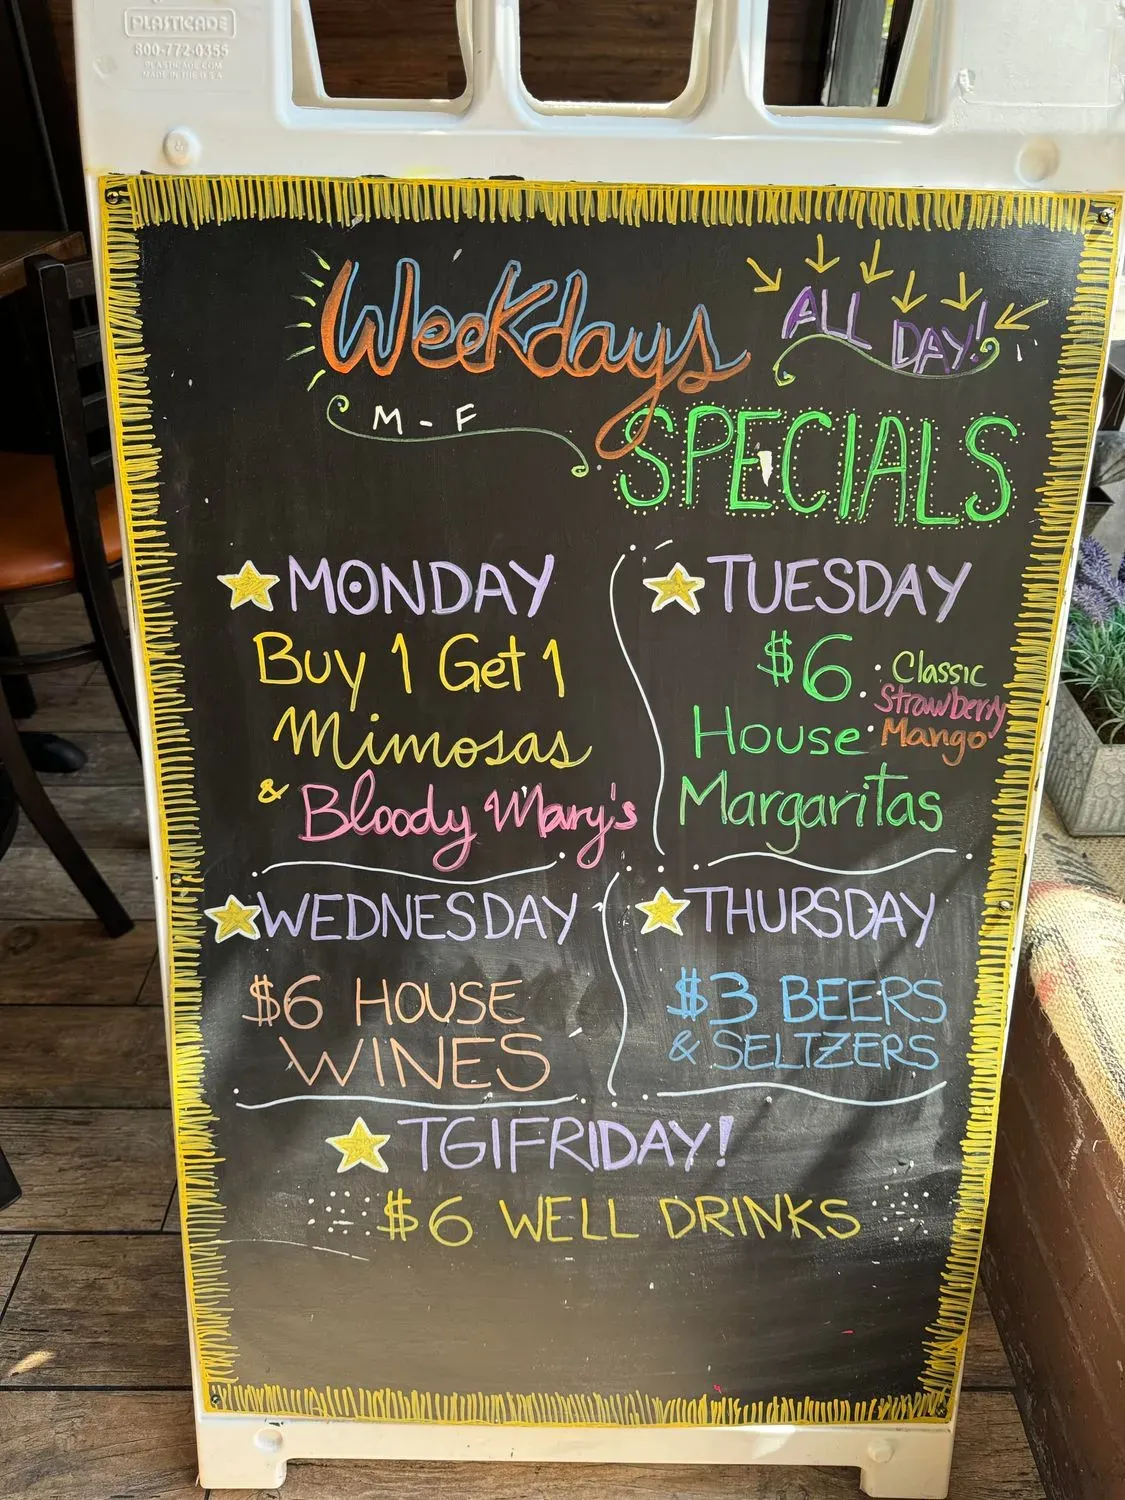 PLASTICADE
800-772-0355
PLASTICADE.COM
MADE IN THE U.S.A.
Weekdays
ALL DAY!
M - F
SPECIALS
MONDAY
Buy 1 Get 1
Mimosas
& Bloody Mary's
TUESDAY
$6
House
Margaritas
· Classic
· Strawberry
· Mango
WEDNESDAY
$6 HOUSE
WINES
THURSDAY
$3 BEERS
& SELTZERS
TGIFRIDAY!
$6 WELL DRINKS